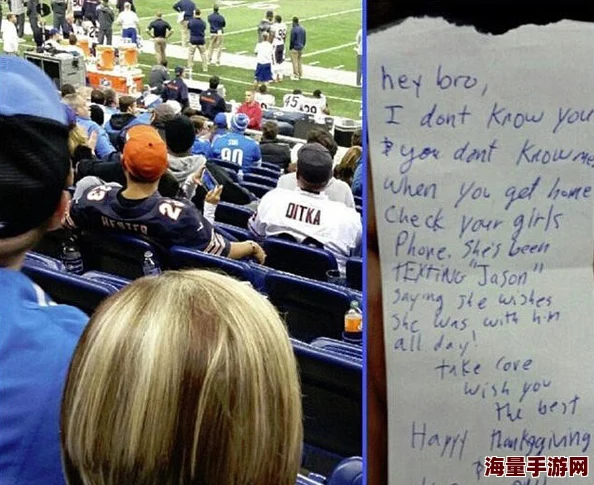 45
90
HESTER
23
DITKA
hey bro,
I dont know you
& you dont know me
when you get home
Check your girls
Phone. She's been
TEXTING "Jason"
saying she wishes
She was with him
all day!
take care
wish you
the best
Happy Thanksgiving
海量手游网